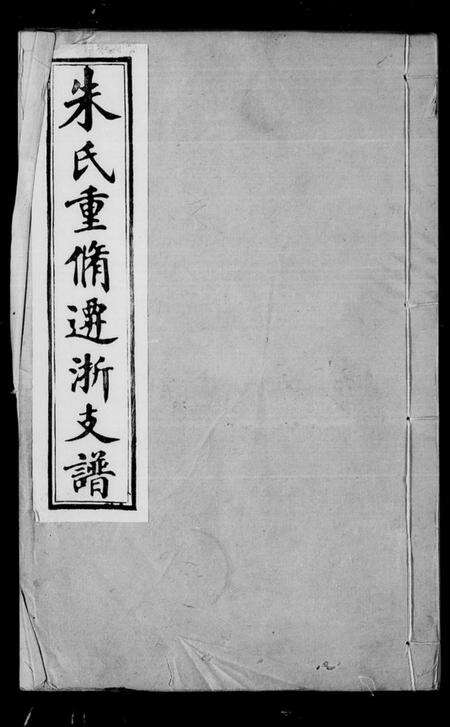 朱氏重脩遷浙支譜